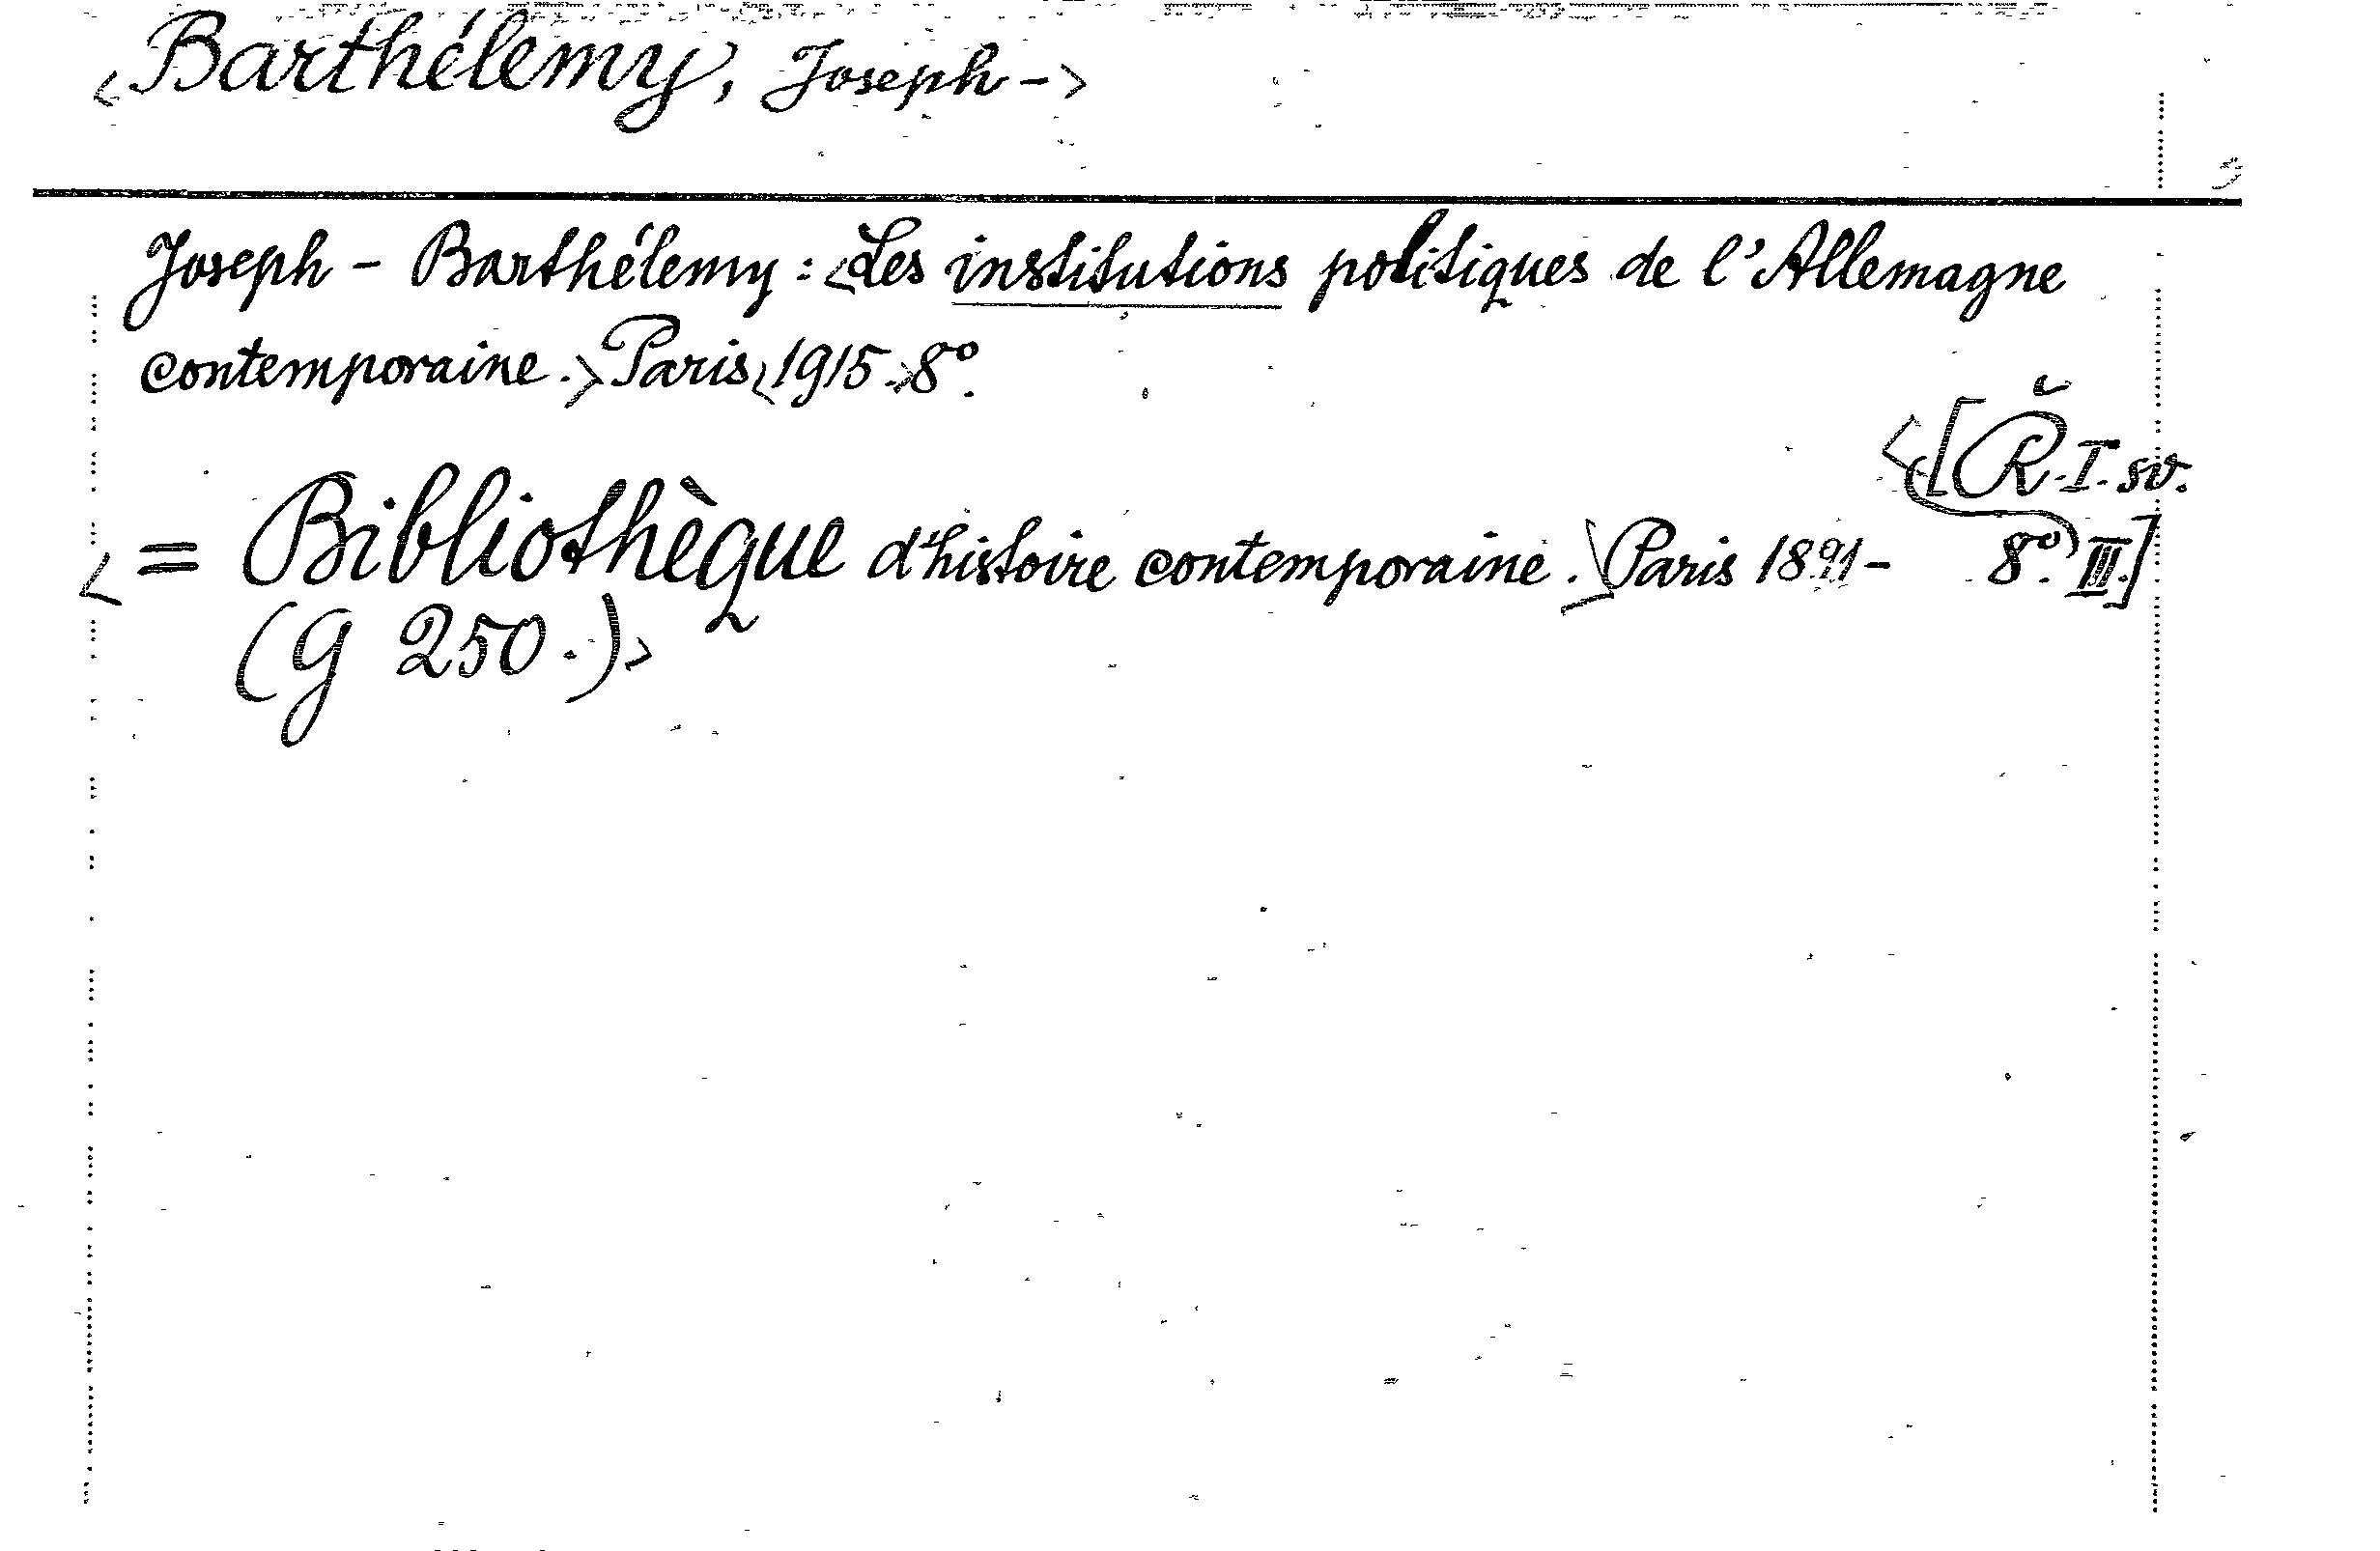 <Barthélemy, Joseph->
Joseph - Barthélemy: <Les institutions politiques de l'Allemagne
contemporaine.> Paris <1915.> 8º.
<[Ř. I. sv.
<= Bibliothèque d'histoire contemporaine.> Paris 1891- 8º. III.]
(G 250.)>